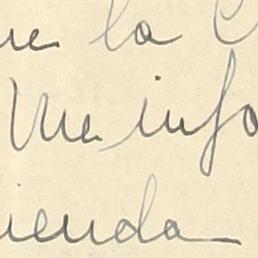 ue la C
Me info
ienda